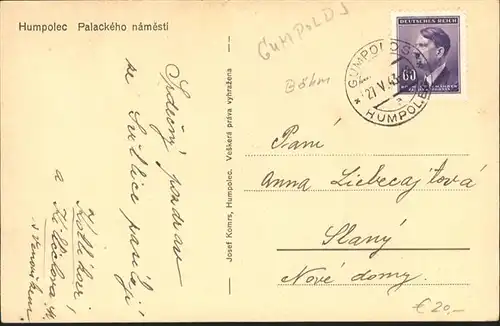 Humpolec Palackého náměstí
GUMPOLDS
Böhm
DEUTSCHES REICH
60
GUMPOLDS
27.V.43
HUMPOLEC
Srdečný pozdrav
ze Světlice posílají
a
Josef Komrs, Humpolec. Veškerá práva vyhražena
Paní
Anna Liebecajtová
Slaný
Nové domy.
€ 20,-